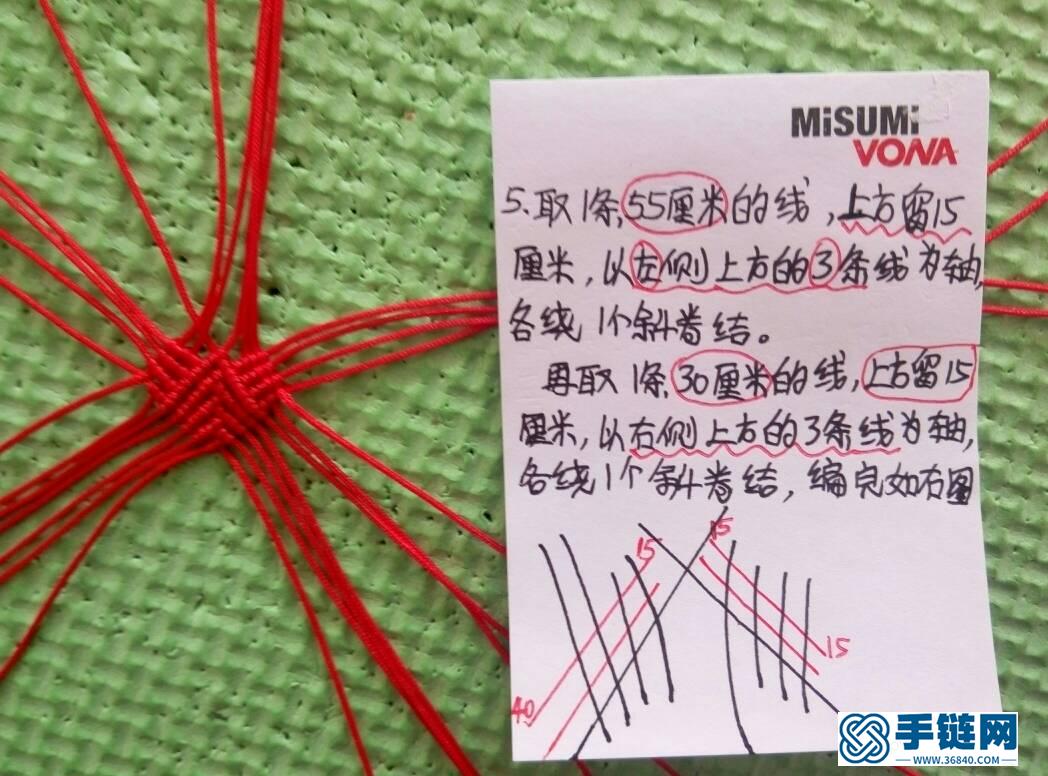 MiSUMi
VONA
5.取1条55厘米的线,上方留15
厘米,以左侧上方的3条线为轴,
各绕1个斜卷结。
再取1条30厘米的线,上方留15
厘米,以右侧上方的3条线为轴,
各绕1个斜卷结,编完如右图
15
15
15
40
手链网
WWW.36840.COM